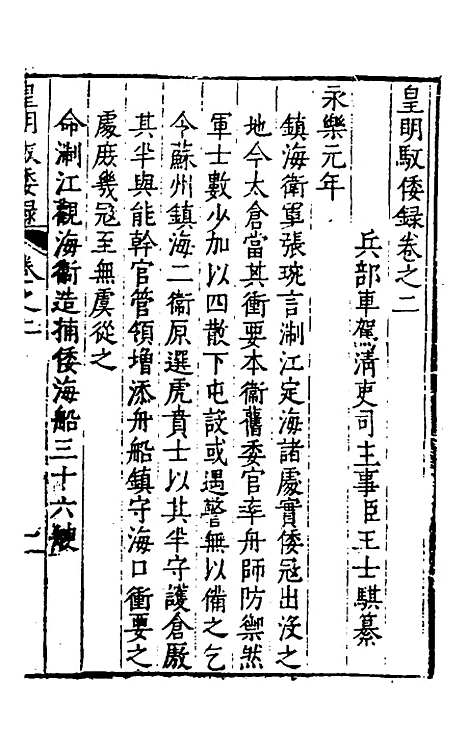 皇明馭倭録卷之二
兵部車駕清吏司主事臣王士騏纂
永樂元年
鎮海衛軍張琬言淛江定海諸處實倭冦出没之
地今太倉當其衝要本衛舊委官率舟師防禦然
軍士數少加以四散下屯設或遇警無以備之乞
今蘇州鎮海二衛原選虎賁士以其半守護倉厫
其半與能幹官管領増添舟船鎮守海口衝要之
處庶幾冦至無虞從之
命淛江觀海衛造捕倭海船三十六艘
皇明馭倭録 卷之二 一